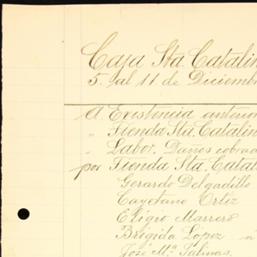 Caja Sta. Catalin
5. al 11 de Diciemb
A Existencia anterio
" Tienda Sta. Catalin
" Labor. Daños cobrad
por Tienda Sta. Catal
Gerardo Delgadillo
Cayetano Ortiz
Eligio Marrero
Brigida López
José Ma. Salinas